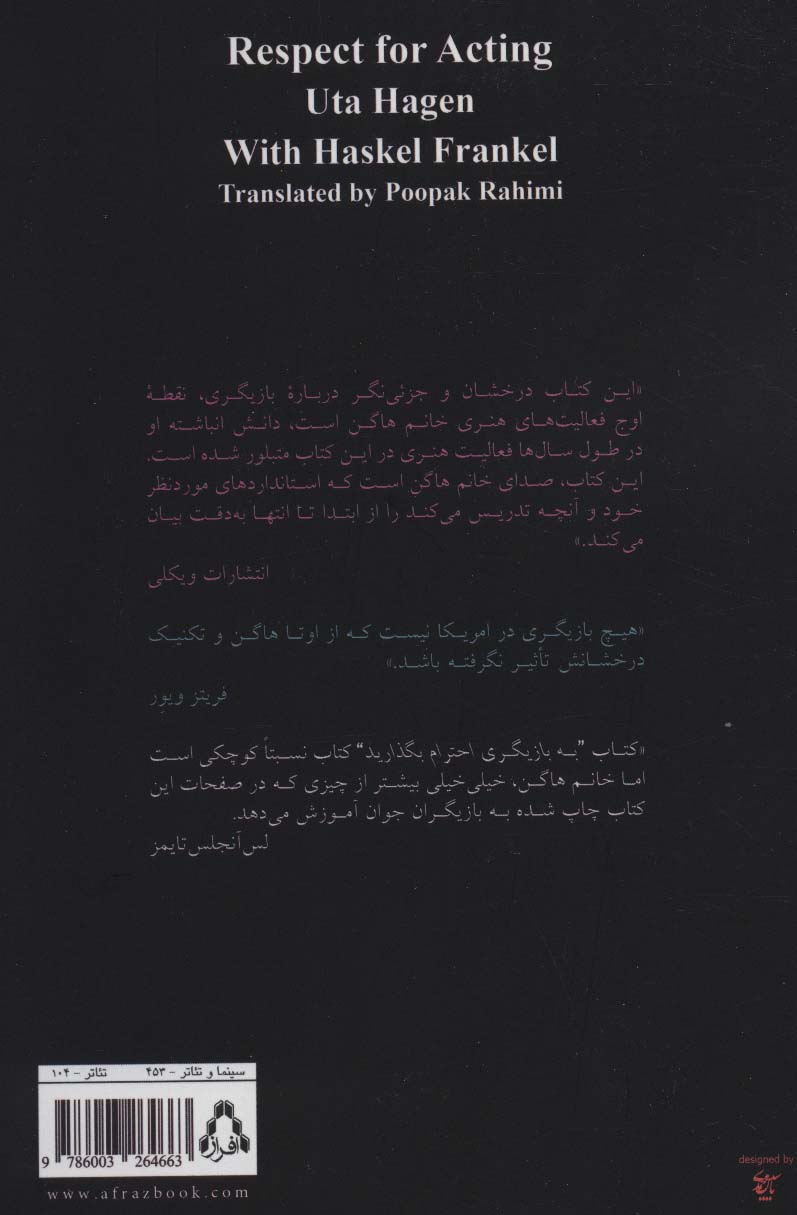 Respect for Acting
Uta Hagen
With Haskel Frankel
Translated by Poopak Rahimi
«این کتاب درخشان و جزئی‌نگر دربارهٔ بازیگری، نقطهٔ
اوج فعالیت‌های هنری خانم هاگن است، دانش انباشته او
در طول سال‌ها فعالیت هنری در این کتاب متبلور شده است.
این کتاب، صدای خانم هاگن است که استانداردهای موردنظر
خود و آنچه تدریس می‌کند را از ابتدا تا انتها به‌دقت بیان
می‌کند.»
انتشارات ویکلی
«هیچ بازیگری در امریکا نیست که از اوتا هاگن و تکنیک
درخشانش تأثیر نگرفته باشد.»
فریتز ویور
«کتاب "به بازیگری احترام بگذارید" کتاب نسبتاً کوچکی است
اما خانم هاگن، خیلی‌خیلی بیشتر از چیزی که در صفحات این
کتاب چاپ شده به بازیگران جوان آموزش می‌دهد.
لس‌آنجلس‌تایمز
سینما و تئاتر - ۴۵۳ تئاتر - ۱۰۴
افراز
9 786003 264663
www.afrazbook.com
designed by